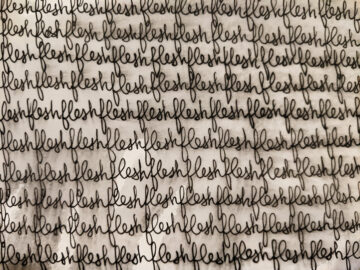 fleshfleshfleshfleshfleshfleshfleshflesh
fleshfleshfleshfleshfleshfleshfleshflesh
fleshfleshfleshfleshfleshfleshfleshflesh
fleshfleshfleshfleshfleshfleshfleshflesh
fleshfleshfleshfleshfleshfleshfleshflesh
fleshfleshfleshfleshfleshfleshfleshflesh
fleshfleshfleshfleshfleshfleshfleshflesh
fleshfleshfleshfleshfleshfleshfleshflesh
fleshfleshfleshfleshfleshfleshfleshflesh
fleshfleshfleshfleshfleshfleshfleshflesh